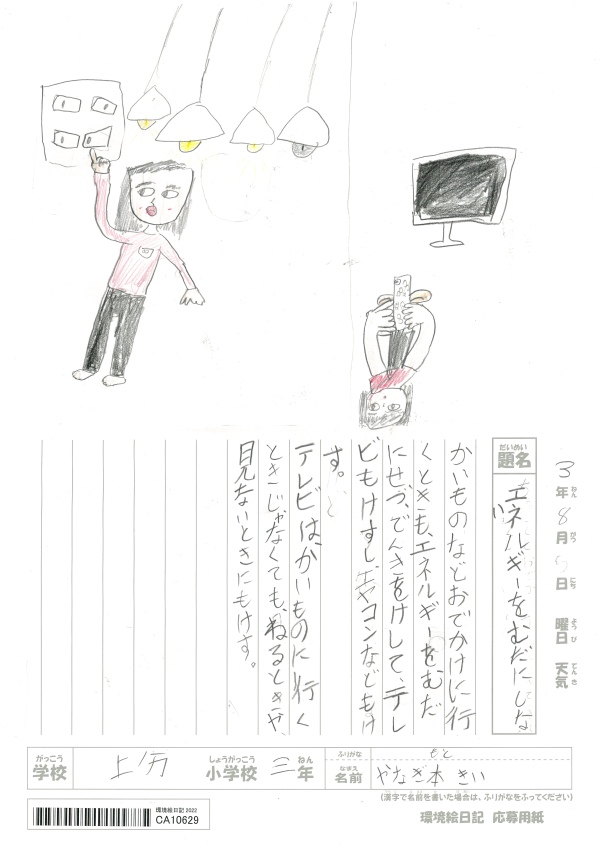 3年ねん8月がつ5日にち 曜日ようび 天気てんき
だいめい
題名
エネルギーをむだにしない
かいものなどおでかけに行
くときも、エネルギーをむだ
にせづ、でんきをけして、テレ
ビもけすし、エヤコンなどもけ
す。
テレビは、かいものに行く
ときじゃなくても、ねるときや、
見ないときにもけす。
がっこう
学校
上川
しょうがっこう
小学校
三年ねん
ふりがな
もと
なまえ
名前
やなぎ本 きい
(漢字で名前を書いた場合は、ふりがなをふってください)
環境絵日記 2022
CA10629
環境絵日記 応募用紙